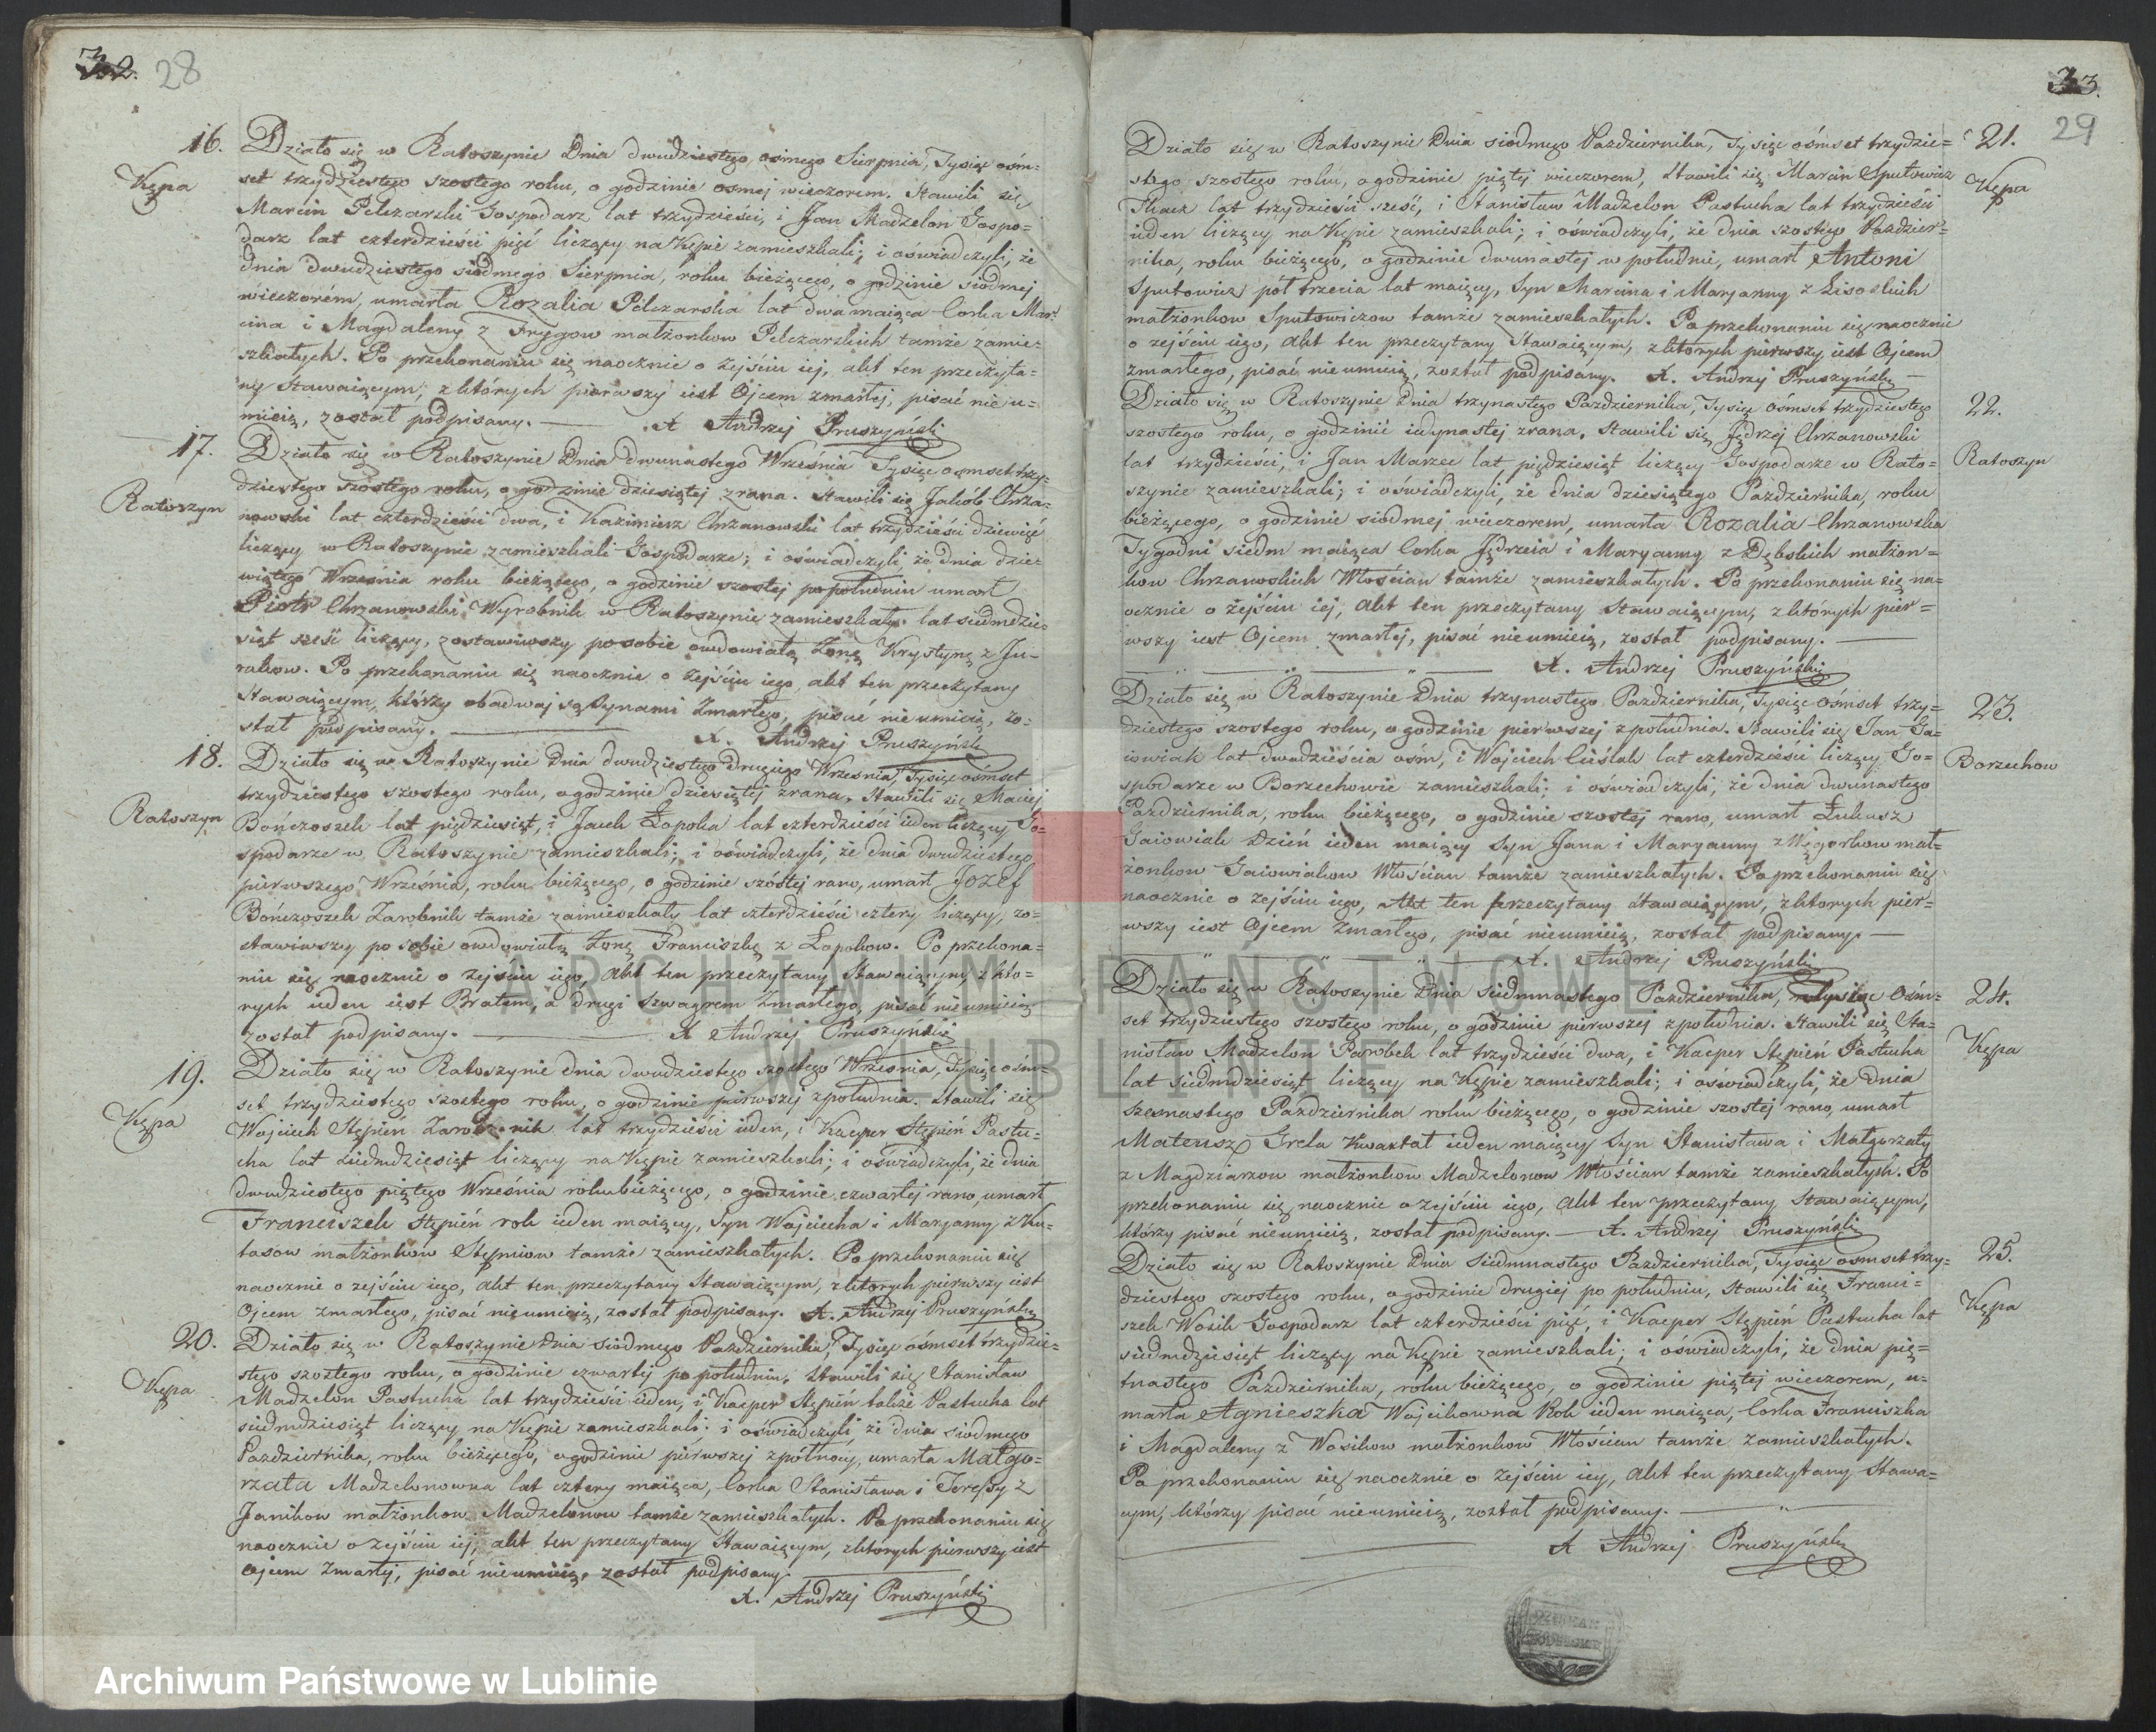 32. 28
16.
Kępa
Działo się w Ratoszynie Dnia dwudziestego ósmego Sierpnia, Tysiąc ośm=
set trzydziestego szostego roku, o godzinie osmej wieczorem. Stawili się
Marcin Pelczarski Gospodarz lat trzydzieści, i Jan Madzelon Gospo=
darz lat czterdzieści pięć liczący na Kępie zamieszkali; i oświadczyli, że
dnia dwudziestego siódmego Sierpnia, roku bieżącego, o godzinie siodmej
wieczorém, umarła Rozalia Pelczarska lat dwa maiąca Corka Mar=
cina i Magdaleny z Frygow małżonkow Pelczarskich tamże zamie=
szkałych. Po przekonaniu się naocznie o zejściu iej, akt ten przeczyta=
ny Stawaiącym, z których pierwszy iest Ojcem zmarłej, pisać nie u=
mieią, został podpisany. — X Andrzej Pruszyński
17.
Ratoszyn
Działo się w Ratoszynie Dnia dwunastego Września Tysiąc osmset trzy=
dziestego szostego roku, o godzinie dziesiątej zrana. Stawili się Jakób Chrza=
nowski lat czterdzieści dwa, i Kazimierz Chrzanowski lat trzydzieści dziewięć
liczący w Ratoszynie zamieszkali Gospodarze; i oświadczyli, że dnia dzie=
wiątego Września roku bieżącego, o godzinie szostej po południu umarł
Piotr Chrzanowski Wyrobnik w Ratoszynie zamieszkały lat siedmdzie=
siąt sześć liczący, zostawiwszy po sobie owdowiałą Żonę Krystynę z Ju=
rakow. Po przekonaniu się naocznie o zejściu iego, akt ten przeczytany
Stawaiącym, którzy obadwaj są Synami Zmarłego, pisać nie umieią, zo=
stał podpisany. — X. Andrzej Pruszyński
18.
Ratoszyn
Działo się w Ratoszynie Dnia dwudziestego drugiego Września, Tysiąc ośmset
trzydziestego szostego roku, o godzinie dziesiątej zrana. Stawili się Maciej
Bończoszek lat pięдziesiąt, i Jacek Łopoka lat czterdzieści ieden liczący Go=
spodarze w Ratoszynie zamieszkali; i oświadczyli, że dnia dwudziestego
pierwszego Września, roku bieżącego, o godzinie szóstej rano, umarł Jozef
Bończoszek Zarobnik tamże zamieszkały lat czterdzieści cztery liczący, zo=
stawiwszy po sobie owdowiałą Żonę Franciszkę z Łopokow. Po przekona=
niu się naocznie o zejściu iego, Akt ten przeczytany Stawaiącym, z kto=
rych ieden iest Bratem, a drugi Szwagrem Zmarłego, pisać nieumieią
został podpisany. — X Andrzej Pruszyński
19.
Kępa
Działo się w Ratoszynie dnia dwudziestego szostego Września, Tysiąc ośm=
set trzydziestego szostego roku, o godzinie pierwszej zpołudnia. stawili się
Wojciech Stępień Zarobnik lat trzydzieści ieden, i Kacper Stępień Pastu=
cha lat siedmdziesiąt liczący na Kępie zamieszkali; i oświadczyli, że dnia
dwudziestego piątego Września roku bieżącego, o godzinie czwartej rano, umarł
Franciszek Stępień rok ieden maiący, Syn Wojciecha i Maryanny z Ku=
tasow małżonkow Stępniow tamże zamieszkałych. Po przekonaniu się
naocznie o zejściu iego, Akt ten przeczytany Stawaiącym, z ktorych pierwszy iest
Ojcem zmarłego, pisać nie umieią, został podpisany. X. Andrzej Pruszyński
20.
Kępa
Działo się w Ratoszynie Dnia siodmego Pazdziernika, Tysiąc ośmset trzydzie=
stego szostego roku, o godzinie czwartej po południu, Stawili się Stanisław
Madzelon Pastucha lat trzydzieści ieden, i Kacper Stępień także Pastucha lat
siedmdziesiąt liczący na Kępie zamieszkali; i oświadczyli że dnia siodmego
Pazdziernika, roku bieżącego, o godzinie pierwszej z północy, umarła Małgo=
rzata Madzelonowna lat cztery maiąca, Corka Stanisława i Teressy z
Janikow małżonkow Madzelonow tamże zamieszkałych. Po przekonaniu się
naocznie o zejściu iej, akt ten przeczytany Stawaiącym, z których pierwszy iest
ojcem Zmarłej, pisać nieumieią, został podpisany.
X. Andrzej Pruszyński
33.
29
21.
Kępa
Działo się w Ratoszynie Dnia siodmego Pazdziernika, Tysiąc ośmset trzydzie=
stego szostego roku, o godzinie piątej wieczorem, stawili się Marcin Sputowicz
Tkacz lat trzydzieści sześć, i Stanisław Madzelon Pastucha lat trzydzieści
ieden liczący na Kępie zamieszkali; i oświadczyli, że dnia szostego Pazdzier=
nika, roku bieżącego, o godzinie dwunastej w południe, umarł Antoni
Sputowicz pół trzecia lat maiący, Syn Marcina i Maryanny z Lisoskich
małżonkow Sputowiczow tamże zamieszkałych. Po przekonaniu się naocznie
o zejściu iego, akt ten przeczytany Stawaiącym, z ktorych pierwszy iest Ojcem
zmarłego, pisać nieumieią, został podpisany. X. Andrzej Pruszyński —
22.
Ratoszyn
Działo się w Ratoszynie Dnia trzynastego Pazdziernika, Tysiąc ośmset trzydziestego
szostego roku, o godzinie iedynastej zrana, Stawili się Jędrzej Chrzanowski
lat trzydzieści, i Jan Marzec lat pięćdziesiąt liczący Gospodarze w Rato=
szynie zamieszkali; i oświadczyli, że dnia dziesiątego Pazdziernika, roku
bieżącego, o godzinie siodmej wieczorem, umarła Rozalia Chrzanowska
Tygodni siedm maiąca Corka Jędrzeia i Maryanny z Dębskich małżon=
kow Chrzanowskich Włościan tamże zamieszkałych. Po przekonaniu się na=
ocznie o zejściu iej, Akt ten przeczytany Stawaiącym, z których pier=
wszy iest Ojcem zmarłej, pisać nieumieią, został podpisany. —
X. Andrzej Pruszyński
23.
Borzechow
Działo się w Ratoszynie Dnia trzynastego Pazdziernika, Tysiąc ośmset trzy=
dziestego szostego roku, o godzinie pierwszej zpołudnia. Stawili się Jan Ga=
iowiak lat dwadzieścia ośm, i Wojciech Cieślak lat czterdzieści liczący Go=
spodarze w Borzechowie zamieszkali; i oświadczyli, że dnia dwunastego
Pazdziernika, roku bieżącego, o godzinie szostej rano, umarł Łukasz
Gaiowiak Dzień ieden maiący Syn Jana i Maryanny z Węgorkow mał=
żonkow Gaiowiakow Włościan tamże zamieszkałych. Po przekonaniu się
naocznie o zejściu iego, Akt ten przeczytany Stawaiącym, z ktorych pier=
wszy iest Ojcem Zmarłego, pisać nieumieią, został podpisany. —
X. Andrzej Pruszyński
24.
Kępa
Działo się w Ratoszynie Dnia siedmnastego Pazdziernika, Tysiąc Ośm=
set trzydziestego szostego roku, o godzinie pierwszej zpołudnia. Stawili się Sta=
nisław Madzelon Parobek lat trzydzieści dwa, i Kacper Stępień Pastucha
lat siedmdziesiąt liczący na Kępie zamieszkali; i oświadczyli, że Dnia
szesnastego Pazdziernika roku bieżącego, o godzinie szostej rano, umarł
Mateusz Grela Kwartał ieden maiący Syn Stanisława i Małgorzaty
z Magdziarzow małżonkow Madzelonow Włościan tamże zamieszkałych. Po
przekonaniu się naocznie o zejściu iego, Akt ten przeczytany Stawaiącym,
którzy pisać nieumieią, został podpisany. — X. Andrzej Pruszyński
25.
Kępa
Działo się w Ratoszynie Dnia Siedmnastego Pazdziernika, Tysiąc osmset trzy=
dziestego szostego roku, o godzinie drugiej po południu, Stawili się Franci=
szek Wosik Gospodarz lat czterdzieści pięć, i Kacper Stępień Pastucha lat
siedmdziesiąt liczący na Kępie zamieszkali; i oświadczyli, że dnia pię=
tnastego Pazdziernika, roku bieżącego, o godzinie piątej wieczorem, u=
marła Agnieszka Wojcikowna Rok ieden maiąca, Corka Franciszka
i Magdaleny z Wosikow małżonkow Włościan tamże zamieszkałych.
Po przekonaniu się naocznie o zejściu iey, Akt ten przeczytany Stawa=
cym, którzy pisać nieumieią, został podpisany. —
X Andrzej Pruszyński
ARCHIWUM PAŃSTWOWE
W LUBLINIE
Archiwum Państwowe w Lublinie